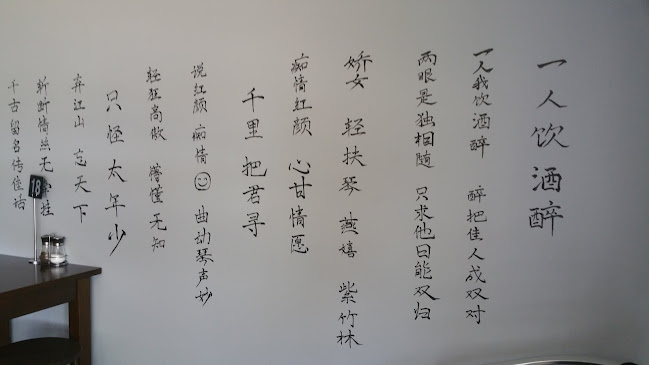 一人饮酒醉
一人我饮酒醉 醉把佳人成双对
两眼是独相随 只求他日能双归
娇女 轻扶琴 燕嬉 紫竹林
痴情红颜 心甘情愿
千里把君寻
说红颜 痴情☺曲动琴声妙
轻狂高傲 懵懂无知
只怪太年少
弃江山 忘天下
斩断情丝无 挂
千古留名传佳话
18